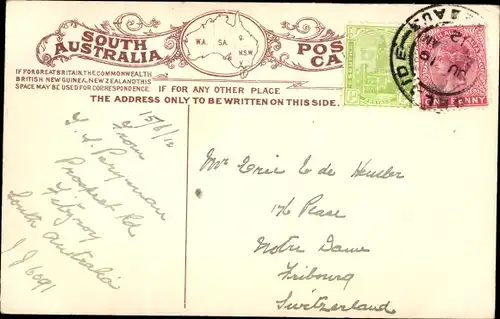 SOUTH AUSTRALIA
POST CARD
W.A. S.A. Q N.S.W.
IF FOR GREAT BRITAIN, THE COMMONWEALTH
BRITISH NEW GUINEA, NEW ZEALAND THIS
SPACE MAY BE USED FOR CORRESPONDENCE.
IF FOR ANY OTHER PLACE
THE ADDRESS ONLY TO BE WRITTEN ON THIS SIDE.
PENNY
15/6/12
From
Peryman
Prospect Rd
Fitzroy
South Australia
Mr Eric C de
Place
Notre Dame
Fribourg
Switzerland